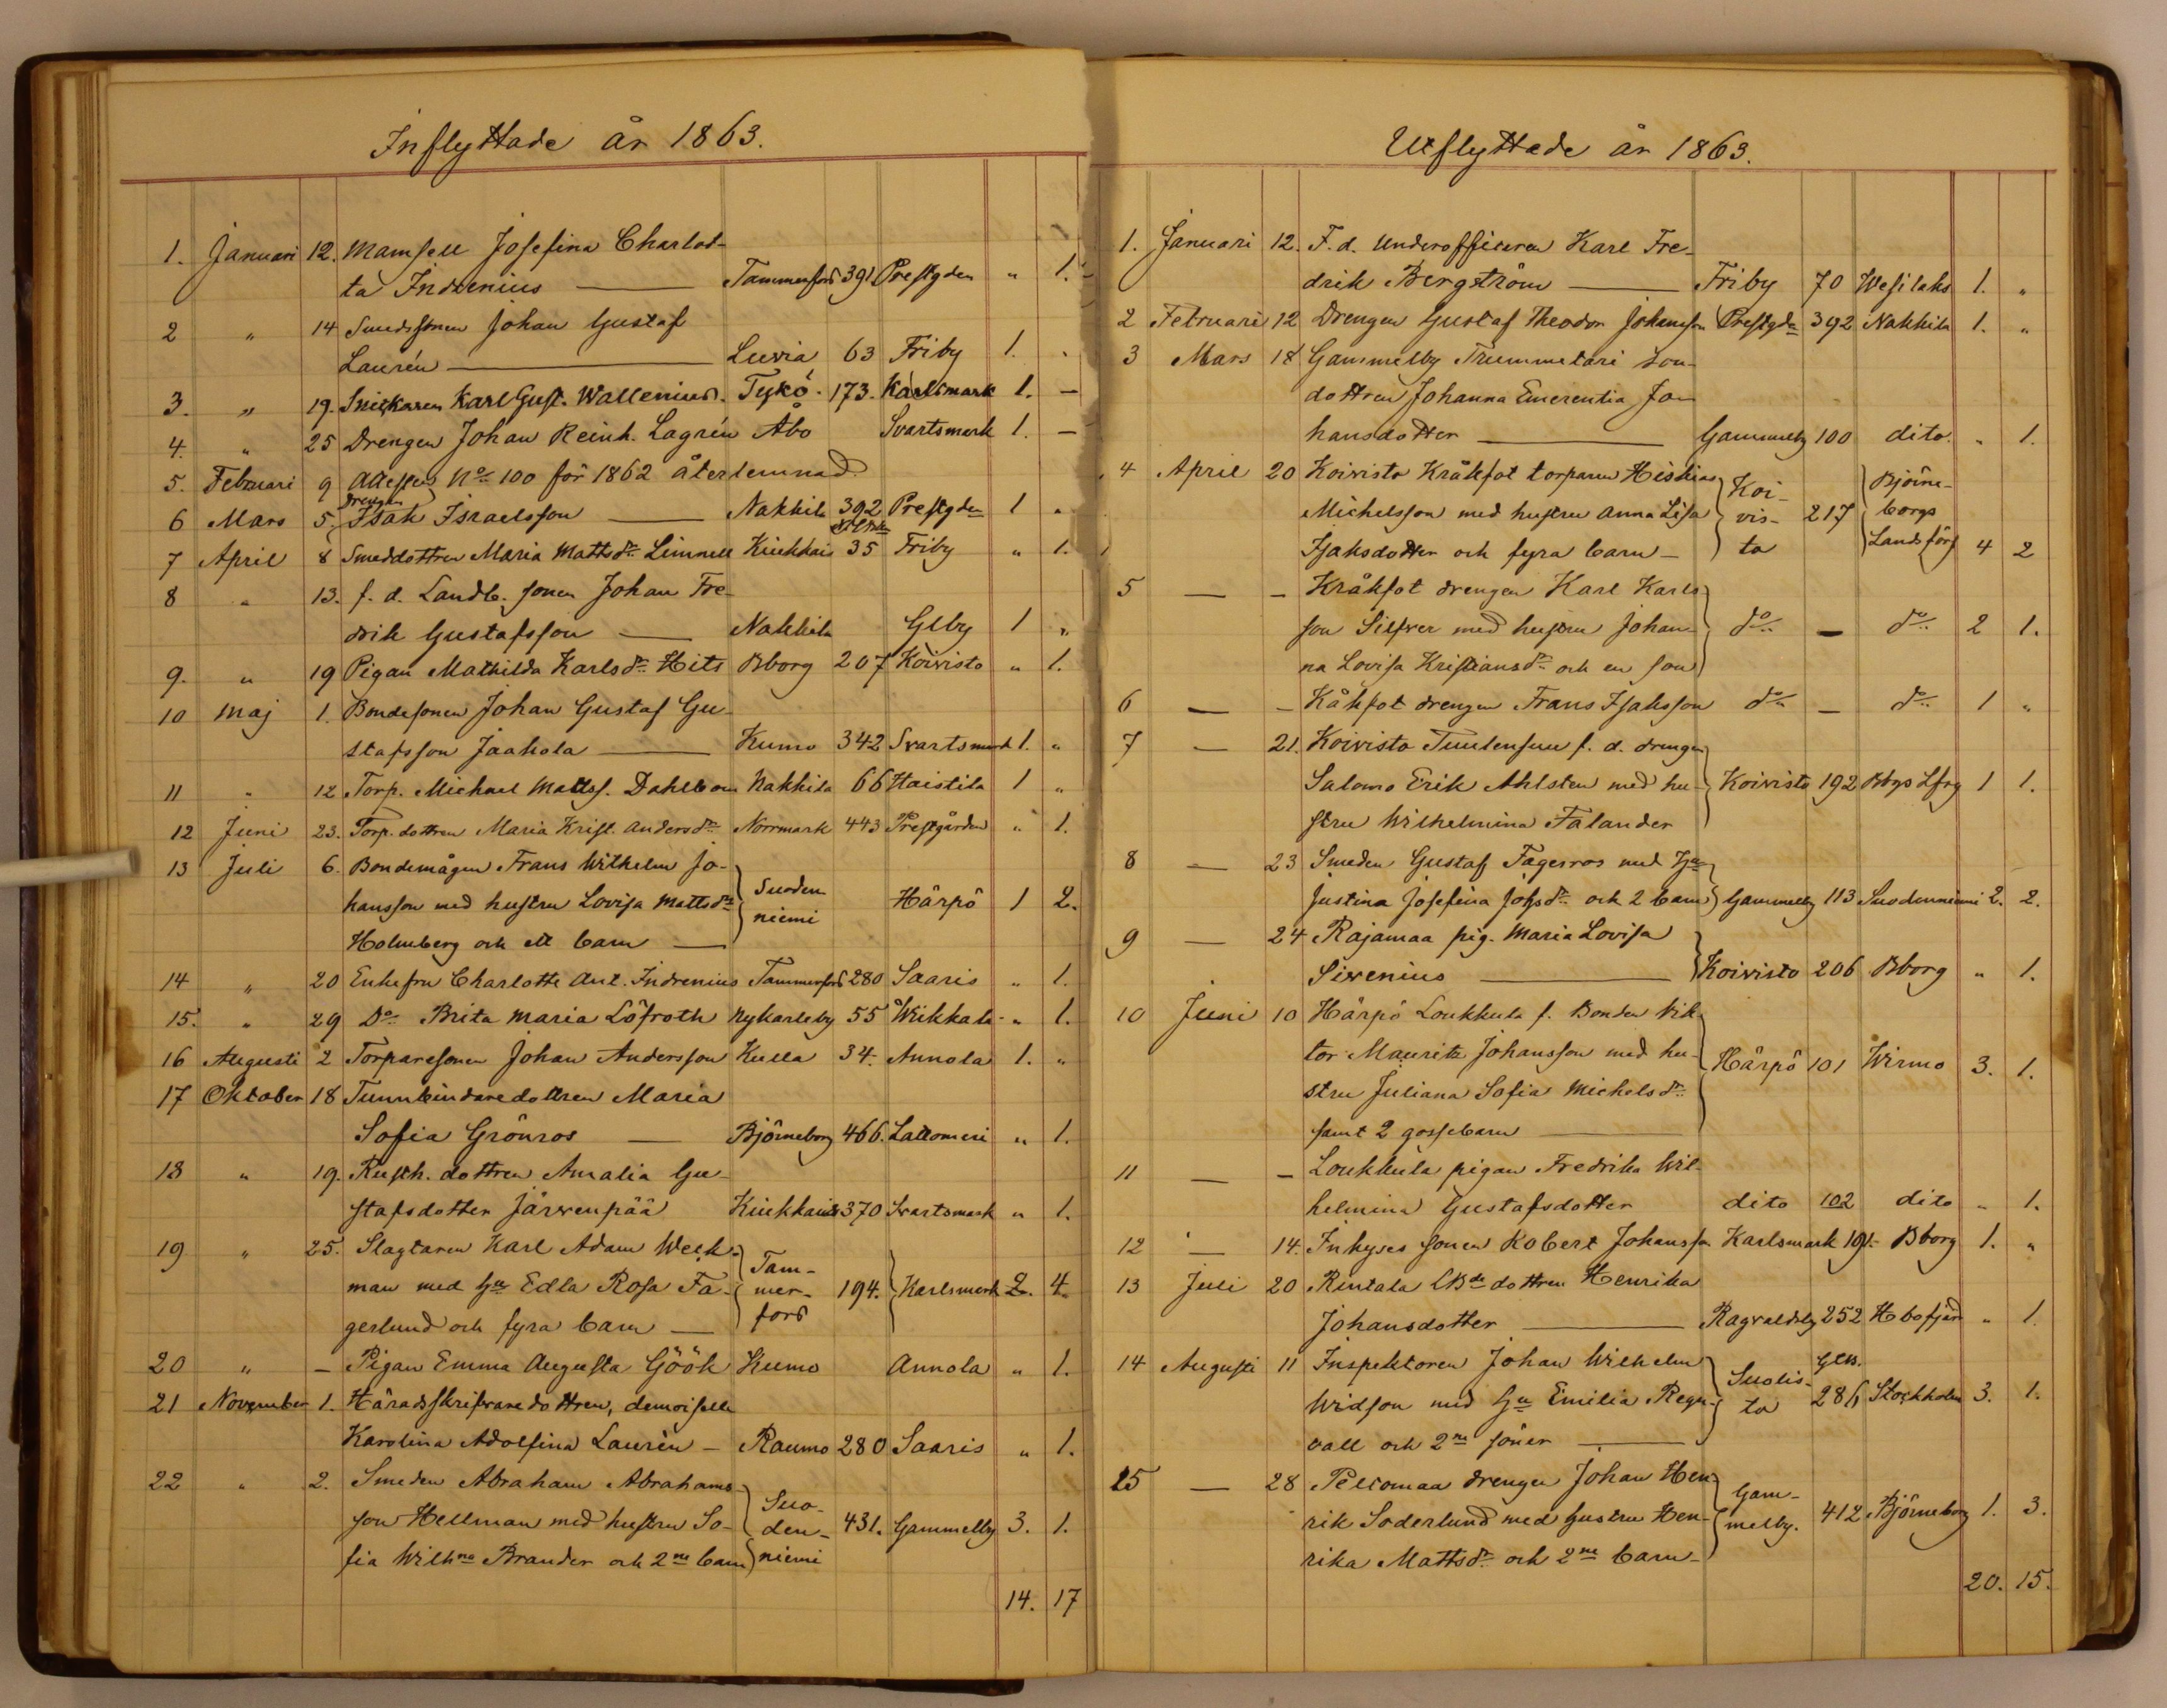 Inflyttade år 1863.
1. Januari 12. Mamsell Josefina Charlot-
ta Indrenius — Tammerfors 391 Prestgden " 1.
2 " 14 Smedssonen Johan Gustaf
Laurén — Luvia 63 Friby 1. "
3. " 19. Snickaren Karl Gust. Wallenius. Tykö. 173. Karlsmark 1. —
4. " 25 Drengen Johan Reinh. Lagrén Åbo Svartsmark 1. —
5. Februari 9 Attesten No 100 för 1862 återlemnad
6 Mars 5. Drengen Isak Israelsson — Nakkila 392 Prestgden 1 "
7 April 8 Smeddottren Maria Mattsdr Limnell Kiukkais 35 Friby " 1.
8 " 13. f. d. Landb. sonen Johan Fre-
drik Gustafsson — Nakkila Glby 1 "
9. " 19 Pigan Mathilda Karlsdr Hits Bborg 207 Koivisto " 1.
10 Maj 1. Bondesonen Johan Gustaf Gu-
stafsson Jaakola — Kumo 342 Svartsmark 1. "
11 " 12 Torp. Michael Mattss. Dahlbom Nakkila 66 Haistila 1 "
12 Juni 23. Torp. dottren Maria Krist. Andersdr Norrmark 443 Prestgården " 1.
13 Juli 6. Bondemågen Frans Wilhelm Jo-
hansson med hustru Lovisa Mattsdr Suoden Härpö 1 2.
niemi
Holmberg och ett barn —
14 " 20 Enkefru Charlotte Ant. Indrenius Tammerfors 280 Saaris " 1.
15. " 29 Do Brita Maria Löfroth Nykarleby 55 Wikkala " 1.
16 Augusti 2 Torparesonen Johan Andersson Kulla 34. Annola 1. "
17 Oktober 18 Tunnbindaredottren Maria
Sofia Grönros — Björneborg 466. Lattomeri " 1.
18 " 19. Rusth. dottren Amalia Gu-
stafsdotter Järvenpää Kiukkais 370 Svartsmark " 1.
19 " 25. Slagtaren Karl Adam Weck-
man med hu Edla Rosa Fa- Tam-
mer- 194. Karlsmark 2. 4.
fors
gerlund och fyra barn —
20 " — Pigan Emma Augusta Göök Kumo Annola " 1.
21 November 1. Häradsskrifvaredottren, demoiselle
Karolina Adolfina Laurén — Raumo 280 Saaris " 1.
22 " 2. Smeden Abraham Abrahams-
son Hellman med hustru So- Suo-
den- 431. Gammelby 3. 1.
fia Wilhna Brander och 2ne barn niemi
14. 17
Utflyttade år 1863.
1. Januari 12. F. d. Underofficeren Karl Fre-
drik Bergström — Friby 70 Wesilaks 1. "
2 Februari 12 Drengen Gustaf Theodor Johansson Prestgdn 392 Nakkila 1. "
3 Mars 18 Gammelby Trummetari son-
dottren Johanna Emerentia Jo-
hansdotter — Gammelby 100 dito. " 1.
4 April 20 Koivisto Kråkfot torparen Hiskias Koi- Björne-
Michelsson med hustru Anna Lisa vis- 217 borgs
Isaksdotter och fyra barn — to Landsförs 4 2
5 — — Kråkfot drengen Karl Karls-
son Silfver med hustru Johan- do — do 2 1.
na Lovisa Kristiansdr och en son
6 — — Kåkfot drengen Frans Isaksson do — do 1 "
7 — 21. Koivisto Tuulensuu f. d. drengen
Salomo Erik Ahlsten med hu- Koivisto 192 Bbgs Lfrg 1 1.
stru Wilhelmina Falander
8 — 23 Smeden Gustaf Fagerros med hu
Justina Josefina Johsdr och 2 barn Gammelby 113 Suodenniemi 2. 2.
9 — 24 Rajamaa pig. Maria Lovisa
Sirenius — Koivisto 206 Bborg " 1.
10 Juni 10 Härpö Loukkula f. Bonden Vik-
tor Mauritz Johansson med hu- Härpö 101 Wirmo 3. 1.
stru Juliana Sofia Michelsdr
samt 2 gossebarn —
11 — — Loukkula pigan Fredrika Wil-
helmina Gustafsdotter dito 102 dito " 1.
12 — 14. Inhyses sonen Robert Johansson Karlsmark 191. Bborg 1. "
13 Juli 20 Rintala LBde dottren Henrika
Johansdotter — Ragvaldsby 252 Hbofjärd " 1.
14 Augusti 11 Inspektoren Johan Wilhelm
Widson med hu Emilia Regn- Suolis-
to 286 Stockholm 3. 1.
vall och 2ne söner —
15 — 28 Peltomaa drengen Johan Hen-
rik Soderlund med hustru Hen- Gam-
melby. 412 Björneborg 1. 3.
rika Mattsdr och 2ne barn —
20. 15.